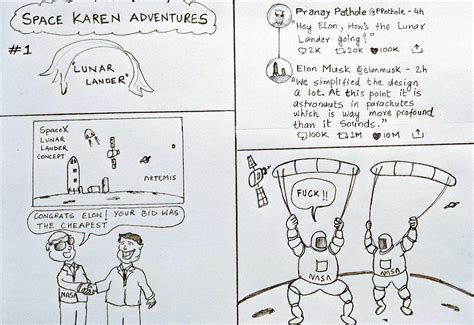 SPACE KAREN ADVENTURES
#1
"LUNAR
LANDER"
SPACEX
LUNAR
LANDER
CONCEPT
ARTEMIS
CONGRATS ELON! YOUR BID WAS
THE CHEAPEST
NASA
Pranay Pathole @PPathole - 4h
"Hey Elon, How's the Lunar
Lander going?"
2K 20K 100K
Elon Musk @elonmusk - 2h
"We simplified the design
a lot. At this point it is
astronauts in parachutes
which is way more profound
than it sounds."
100K 1M 10M
FUCK!!
NASA
NASA